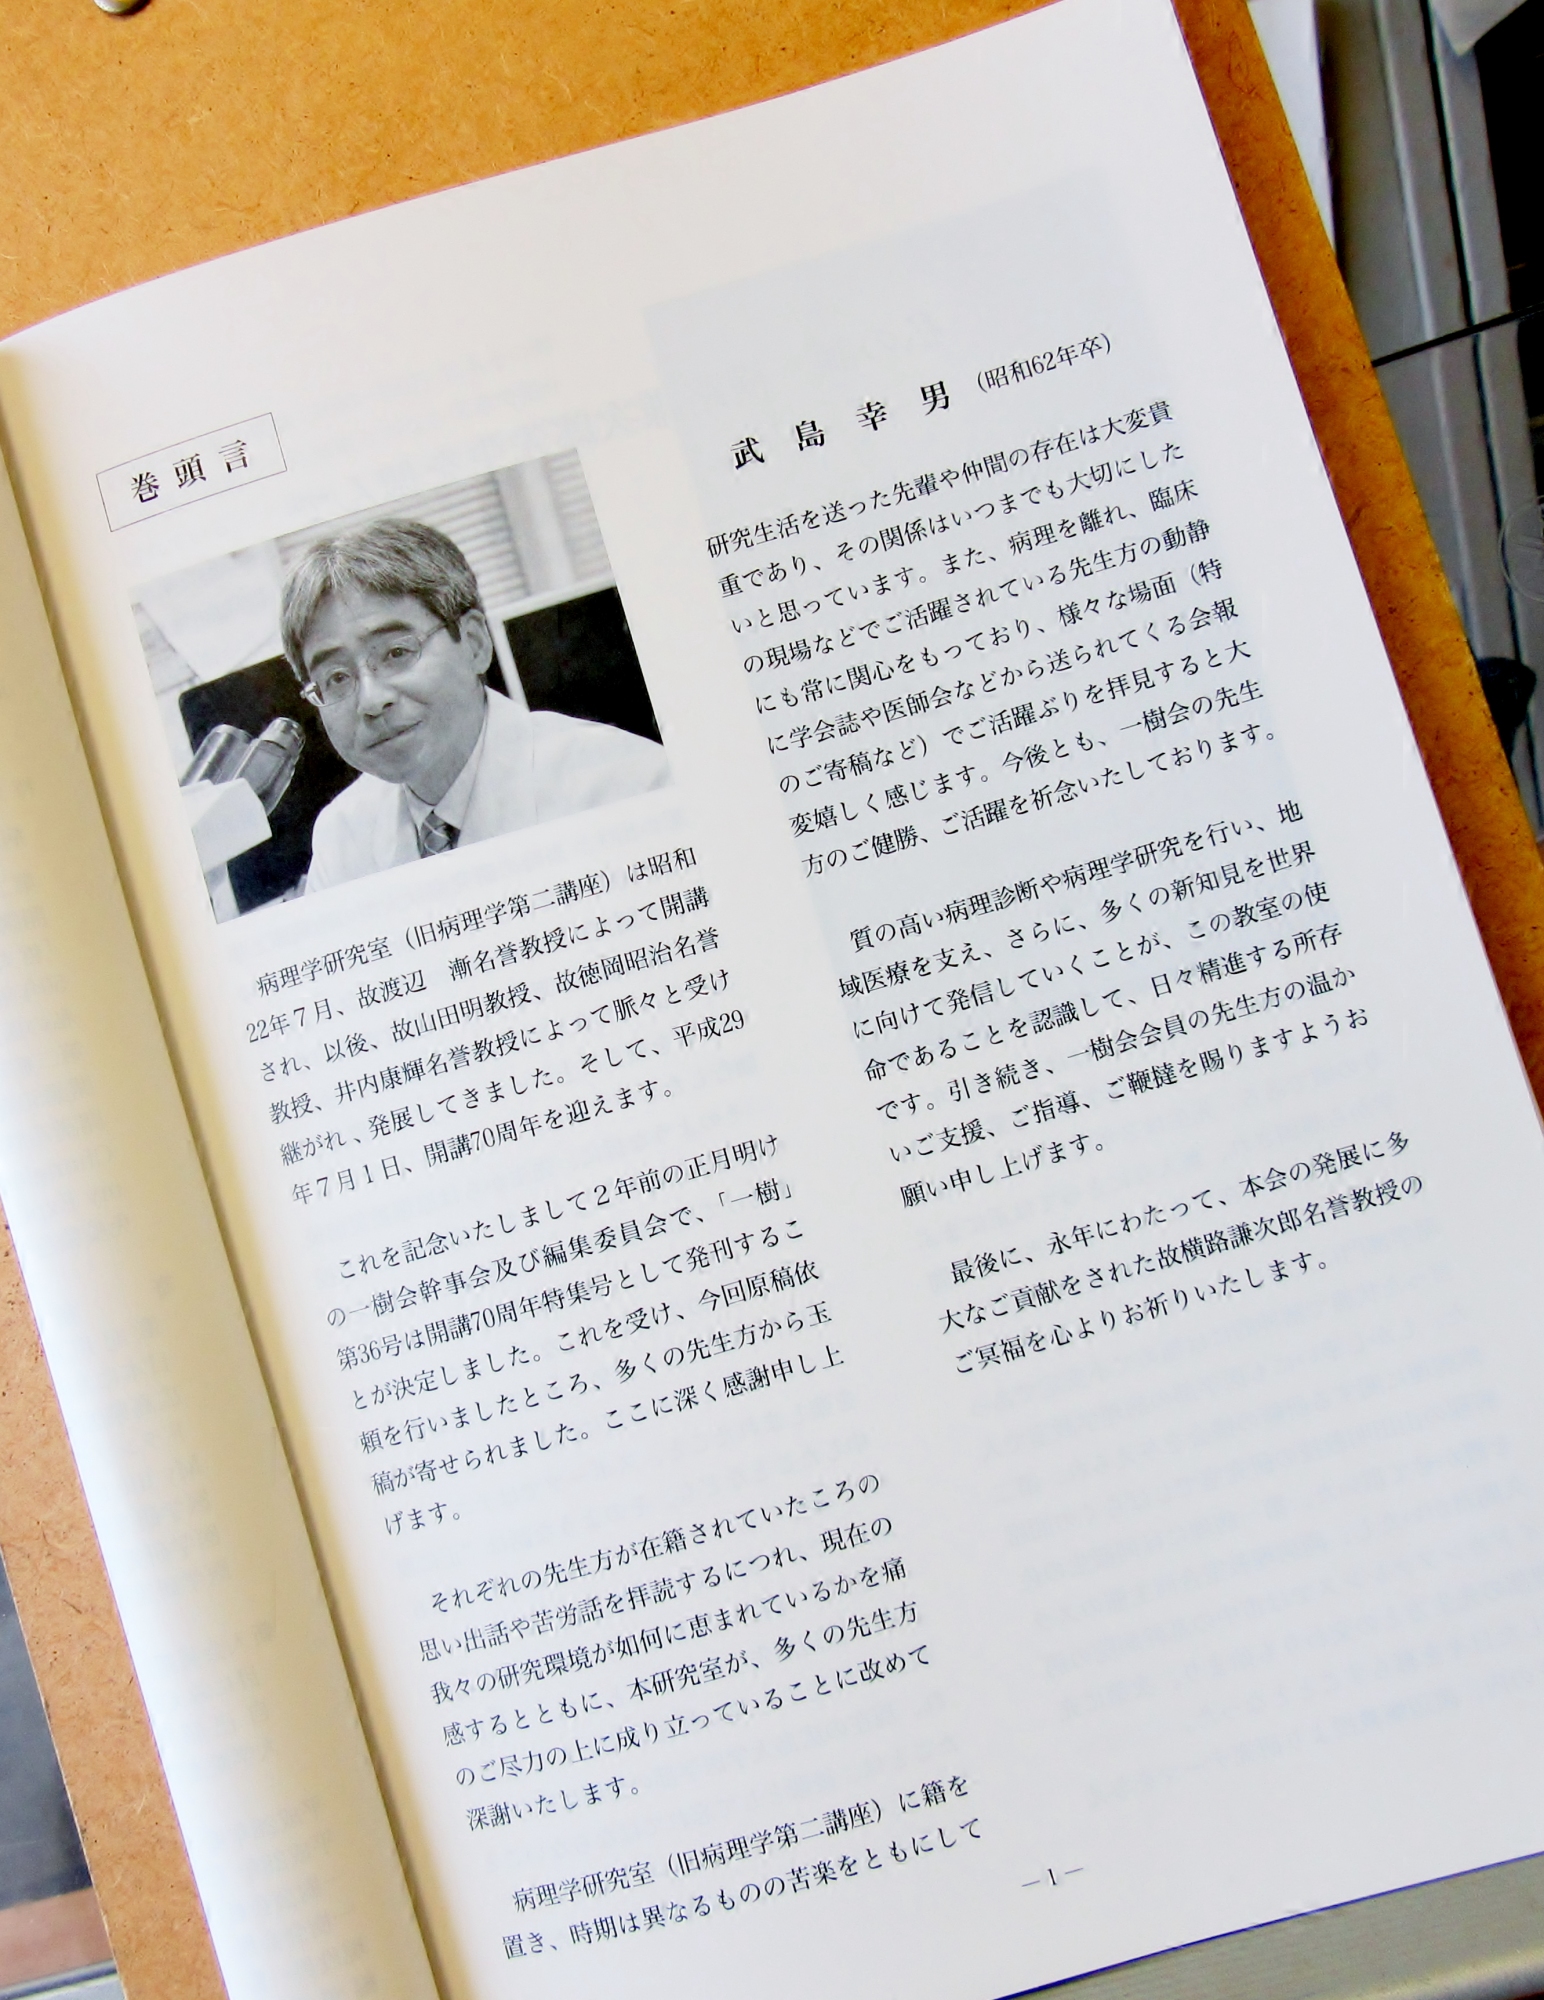 巻頭言
武島幸男（昭和62年卒）
病理学研究室（旧病理学第二講座）は昭和
22年７月、故渡辺　漸名誉教授によって開講
され、以後、故山田明教授、故徳岡昭治名誉
教授、井内康輝名誉教授によって脈々と受け
継がれ、発展してきました。そして、平成29
年７月１日、開講70周年を迎えます。
これを記念いたしまして２年前の正月明け
の一樹会幹事会及び編集委員会で、「一樹」
第36号は開講70周年特集号として発刊するこ
とが決定しました。これを受け、今回原稿依
頼を行いましたところ、多くの先生方から玉
稿が寄せられました。ここに深く感謝申し上
げます。
それぞれの先生方が在籍されていたころの
思い出話や苦労話を拝読するにつれ、現在の
我々の研究環境が如何に恵まれているかを痛
感するとともに、本研究室が、多くの先生方
のご尽力の上に成り立っていることに改めて
深謝いたします。
病理学研究室（旧病理学第二講座）に籍を
置き、時期は異なるものの苦楽をともにして
研究生活を送った先輩や仲間の存在は大変貴
重であり、その関係はいつまでも大切にした
いと思っています。また、病理を離れ、臨床
の現場などでご活躍されている先生方の動静
にも常に関心をもっており、様々な場面（特
に学会誌や医師会などから送られてくる会報
のご寄稿など）でご活躍ぶりを拝見すると大
変嬉しく感じます。今後とも、一樹会の先生
方のご健勝、ご活躍を祈念いたしております。
質の高い病理診断や病理学研究を行い、地
域医療を支え、さらに、多くの新知見を世界
に向けて発信していくことが、この教室の使
命であることを認識して、日々精進する所存
です。引き続き、一樹会会員の先生方の温か
いご支援、ご指導、ご鞭撻を賜りますようお
願い申し上げます。
最後に、永年にわたって、本会の発展に多
大なご貢献をされた故横路謙次郎名誉教授の
ご冥福を心よりお祈りいたします。
－1－